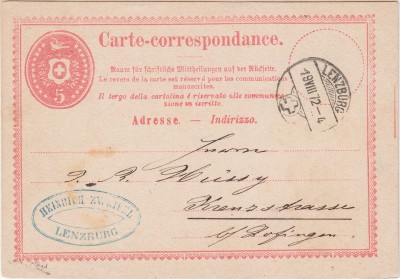 Carte-correspondance.
5
Raum für schriftliche Mittheilungen auf der Rückseite.
Le revers de la carte est réservé pour les communications
manuscrites.
Il tergo della cartolina è riservato alle communicazioni
in iscritto.
Adresse. — Indirizzo.
LENZBURG
19 VIII 72 - 4
Herrn
Kreuzstrasse
b/ Zofingen
HEINRICH
LENZBURG